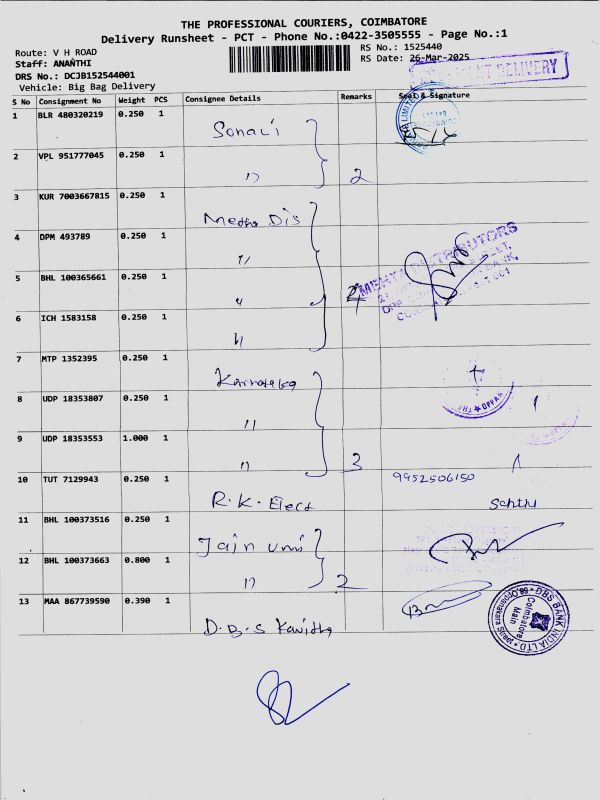 THE PROFESSIONAL COURIERS, COIMBATORE
Delivery Runsheet - PCT - Phone No.:0422-3505555 - Page No.:1
Route: V H ROAD
RS No.: 1525440
Staff: ANANTHI
RS Date: 26-Mar-2025
DRS No.: DCJB152544001
Vehicle: Big Bag Delivery
DELIVERY
S No Consignment No Weight PCS Consignee Details Remarks Seal & Signature
1 BLR 480320219 0.250 1
Sonali
2 VPL 951777045 0.250 1
" 2
3 KUR 7003667815 0.250 1
Metha Dis
4 DPM 493789 0.250 1
"
5 BHL 100365661 0.250 1
" 4
DISTRIBUTORS
6 ICH 1583158 0.250 1
"
7 MTP 1352395 0.250 1
Karnataka
8 UDP 18353807 0.250 1
"
9 UDP 18353553 1.000 1
" 3
10 TUT 7129943 0.250 1 9952506150
R.K. Elect
11 BHL 100373516 0.250 1
Jain uni
12 BHL 100373663 0.800 1
" 2
13 MAA 867739590 0.390 1
D.B.S Kavitha
DBS BANK INDIA LTD
Coimbatore
Main